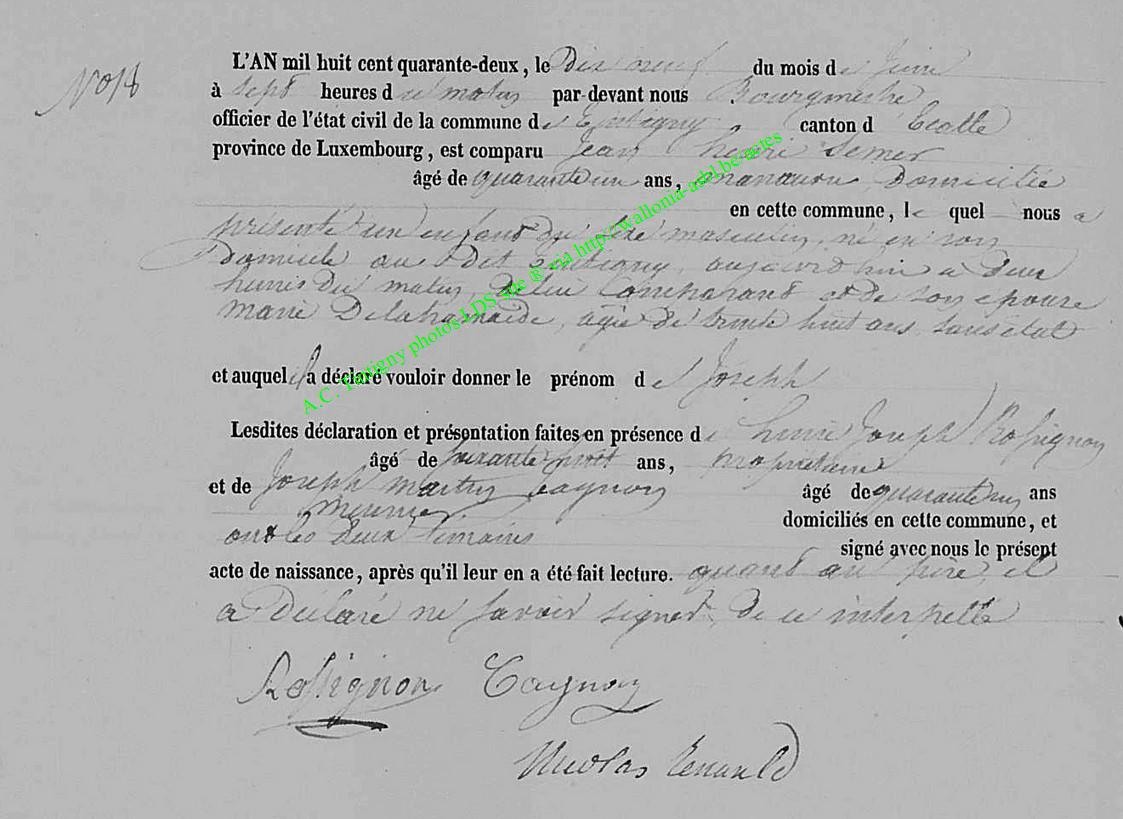 No 18
L'AN mil huit cent quarante-deux, le Dix neuf du mois de Juin
à Sept heures du matin par-devant nous Bourgmestre
officier de l'état civil de la commune de Tintigny canton d'Etalle
province de Luxembourg, est comparu Jean henri
âgé de quarante un ans, manœuvre Domicilié
en cette commune, le quel nous a
présenté un enfant du sexe masculin, né en son
Domicile au dit Tintigny, aujourd'hui a Deux
heures du matin, De lui Comparant et de son epouse
Marie Delahamaide, agée de trente huit ans, sans état
et auquel il a déclaré vouloir donner le prénom de Joseph
Lesdites déclaration et présentation faites en présence de henri Joseph Rossignon
âgé de soixante huit ans, propriétaire
et de Joseph martin âgé de quarante un ans
meunier domiciliés en cette commune, et
ont les deux témoins signé avec nous le présent
acte de naissance, après qu'il leur en a été fait lecture. quant au père, il
a Déclaré ne savoir signer, de ce interpellé
Rossignon
Nicolas
A.C. Tintigny photos LDS site ® via http://wallonia-asbl.be-actes